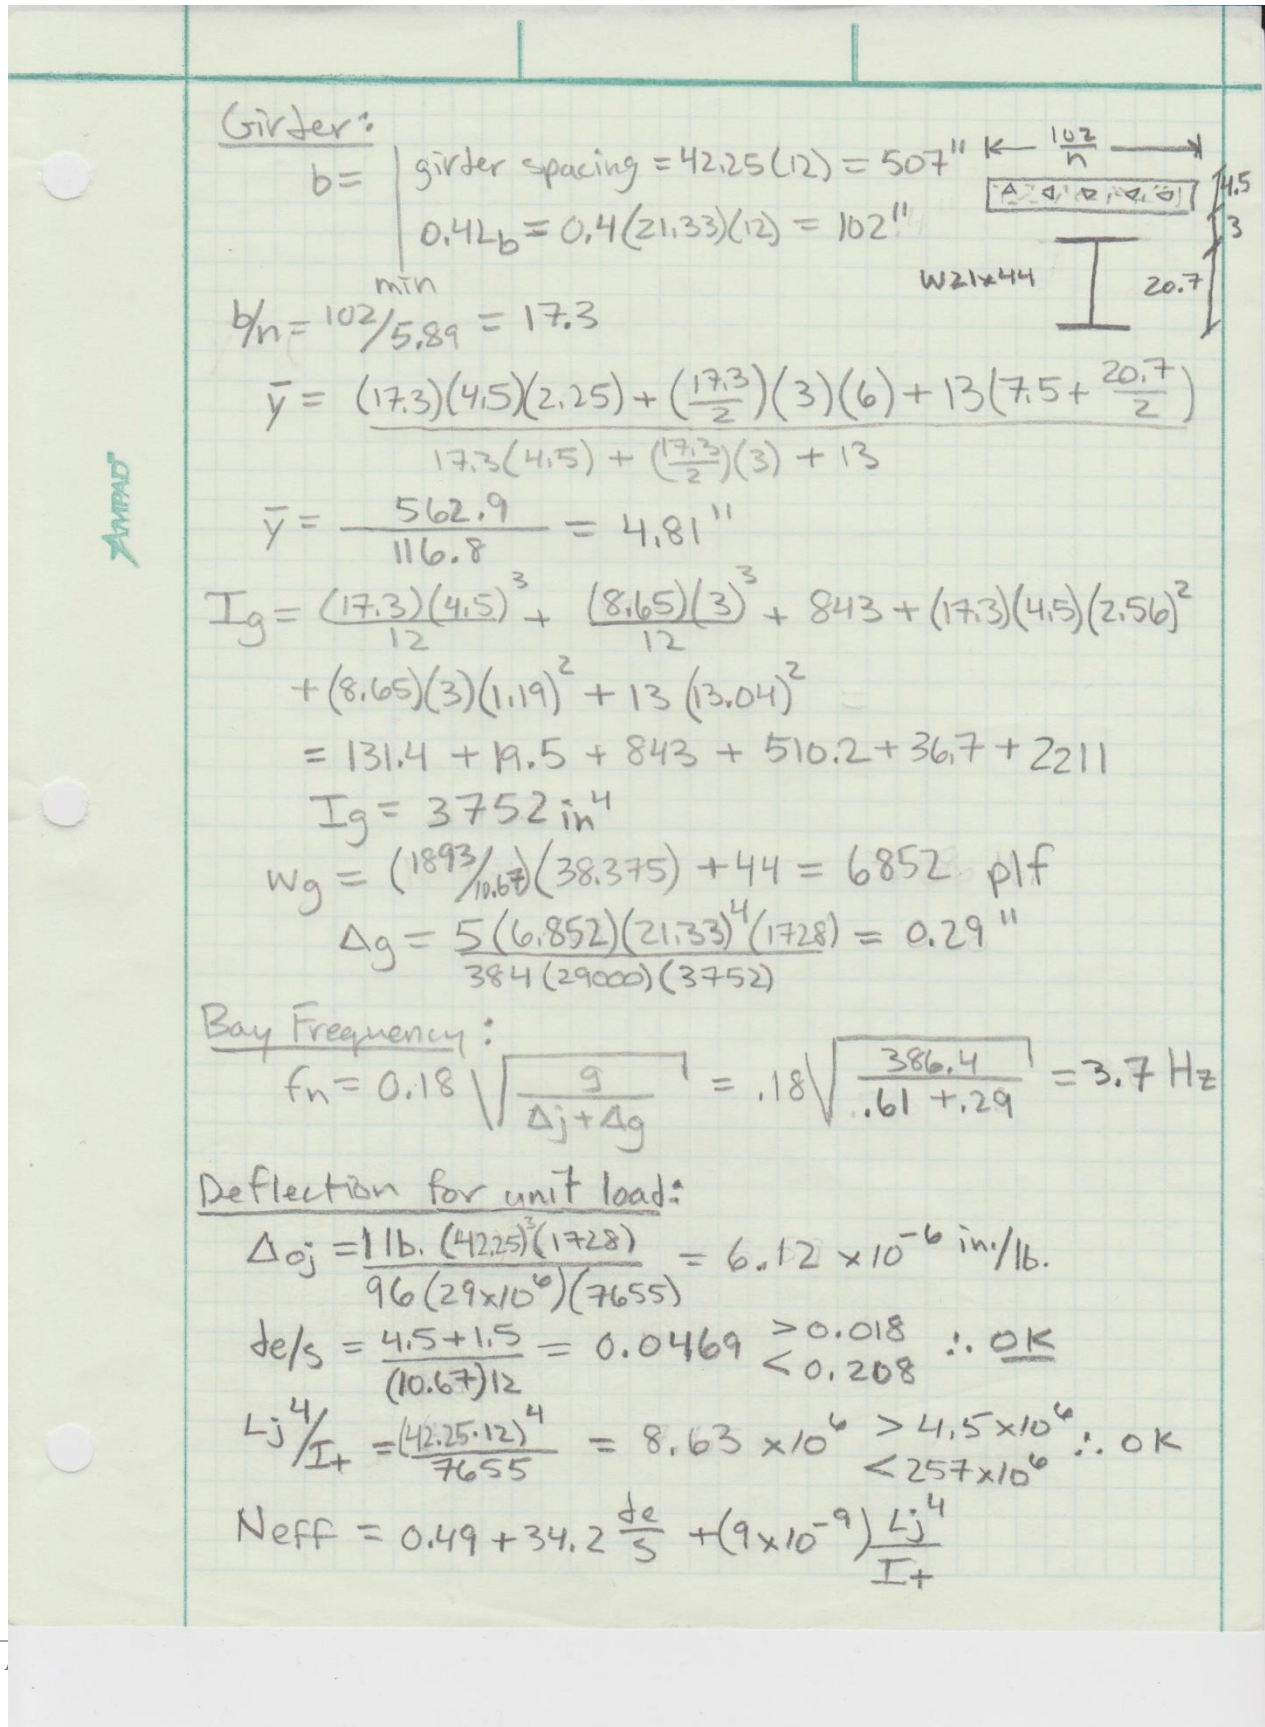 Girder:
b= | girder spacing = 42.25(12) = 507"
0.4Lb = 0.4(21.33)(12) = 102"
min
102/n
4.5
3
W21x44
20.7
b/n = 102/5.89 = 17.3
ȳ = (17.3)(4.5)(2.25) + (17.3/2)(3)(6) + 13(7.5 + 20.7/2)
17.3(4.5) + (17.3/2)(3) + 13
ȳ = 562.9/116.8 = 4.81"
Ig = (17.3)(4.5)³/12 + (8.65)(3)³/12 + 843 + (17.3)(4.5)(2.56)²
+ (8.65)(3)(1.19)² + 13(13.04)²
= 131.4 + 19.5 + 843 + 510.2 + 36.7 + 2211
Ig = 3752 in⁴
wg = (1893/10.67)(38.375) + 44 = 6852 plf
Δg = 5(6.852)(21.33)⁴(1728)/384(29000)(3752) = 0.29"
Bay Frequency:
fn = 0.18 √(g/(Δj+Δg)) = .18√(386.4/(.61+.29)) = 3.7 Hz
Deflection for unit load:
Δoj = 1 lb. (42.25)³(1728)/96(29x10⁶)(7655) = 6.12 x10⁻⁶ in./lb.
de/s = 4.5+1.5/(10.67)12 = 0.0469 >0.018 <0.208 ∴ OK
Lj⁴/I+ = (42.25·12)⁴/7655 = 8.63 x10⁶ > 4.5x10⁶ < 257x10⁶ ∴ OK
Neff = 0.49 + 34.2 de/s + (9x10⁻⁹) Lj⁴/I+
AMPAD